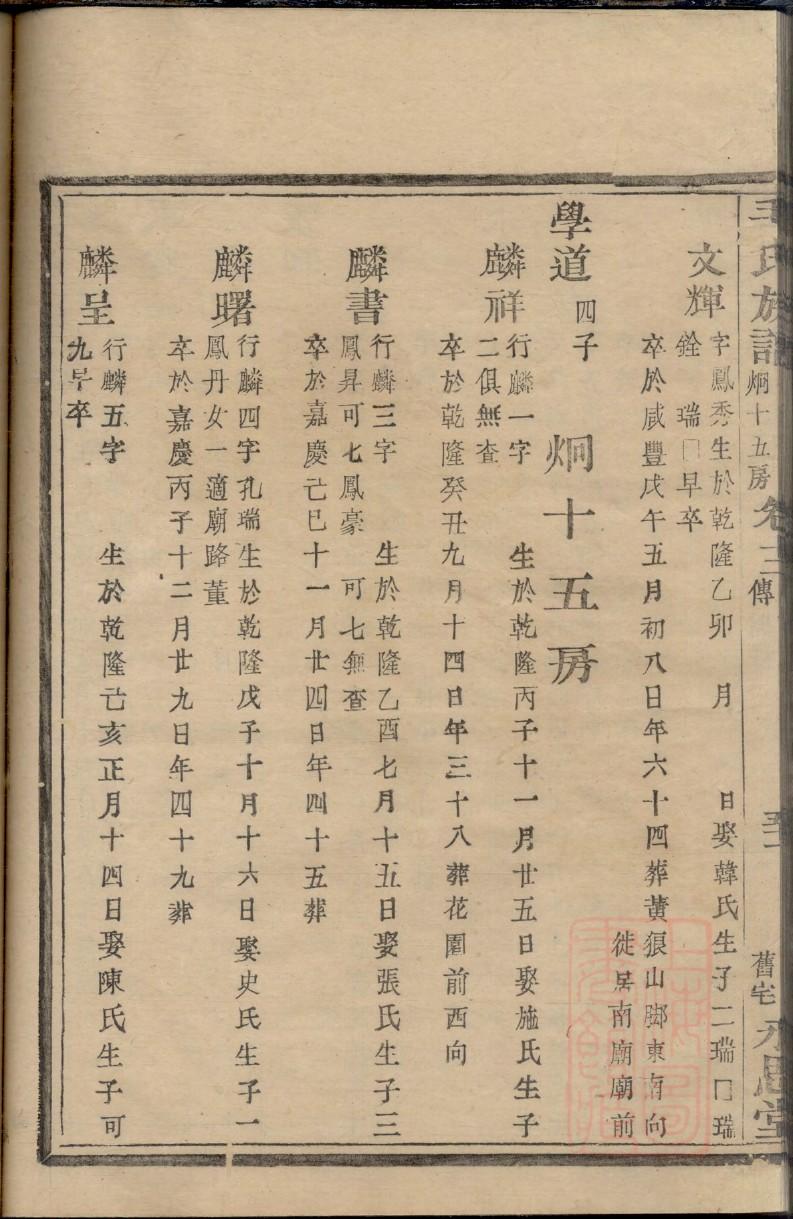 王氏族譜 炯十五房 卷三 傳 舊宅 永思堂
文輝 字鳳秀生於乾隆乙卯 月 日娶韓氏生子二瑞囗瑞
銓 瑞囗早卒
卒於咸豐戊午五月初八日年六十四葬黃狼山脚東南向
徙居南廟廟前
學道 四子 炯十五房
麟祥 行麟一字 生於乾隆丙子十一月廿五日娶施氏生子
二俱無查
卒於乾隆癸丑九月十四日年三十八葬花園前西向
麟書 行麟三字 生於乾隆乙酉七月十五日娶張氏生子三
鳳昇可七鳳豪 可七無查
卒於嘉慶己巳十一月廿四日年四十五葬
麟曙 行麟四字孔瑞生於乾隆戊子十月十六日娶史氏生子一
鳳丹女一適廟路董
卒於嘉慶丙子十二月廿九日年四十九葬
麟呈 行麟五字 生於乾隆己亥正月十四日娶陳氏生子可
九早卒